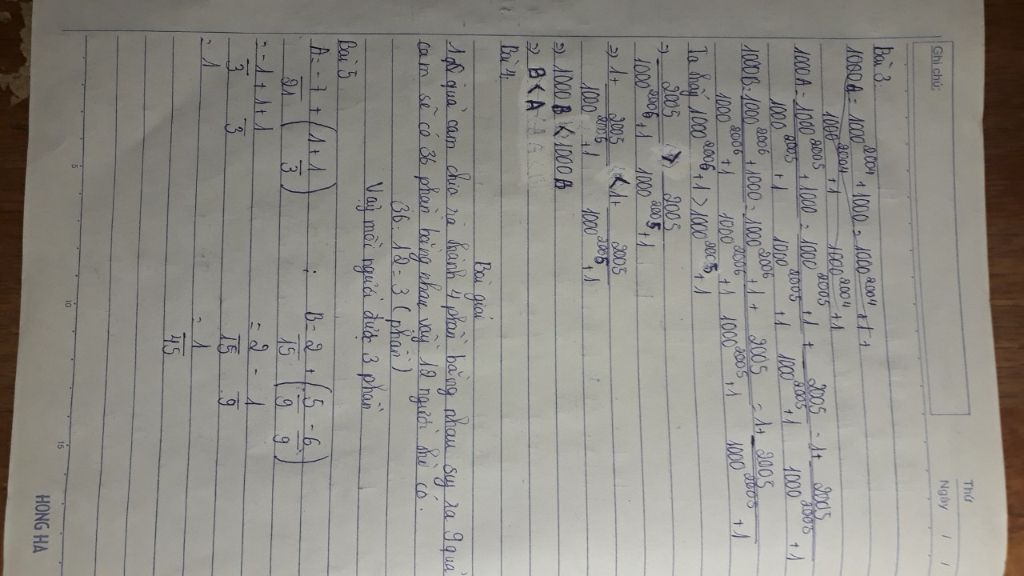 Ghi chú:
Thứ
Ngày / /
Bài 3.
1000A = 1000^2004 + 1000 = 1000^2004 + 1 +
1000^2004 + 1 1000^2004 + 1
1000A = 1000^2005 + 1000 = 1000^2005 + 1 + 2005 = 1 + 2005
1000^2005 + 1 1000^2005 + 1 1000^2005 + 1 1000^2005 + 1
1000B = 1000^2006 + 1000 = 1000^2006 + 1 + 2005 = 1 + 2005
1000^2006 + 1 1000^2006 + 1 1000^2005 + 1 1000^2005 + 1
Ta thấy 1000^2006 + 1 > 1000^2005 + 1
⇒ 2005 > 2005
1000^2006 + 1 1000^2005 + 1
⇒ 1 + 2005 < 1 + 2005
1000^2005 + 1 1000^2005 + 1
⇒ 1000B < 1000B
⇒ B < A
Bài 4.
Bài giải
1 quả cam chia ra thành 4 phần bằng nhau suy ra 9 quả
cam sẽ có 36 phần bằng nhau vậy 12 người thì có.
36 : 12 = 3 (phần)
Vậy mỗi người được 3 phần
Bài 5
A = -7 + (1 + 1) ; B = 2 + (5 - 6)
21 3 15 9 9
= -1 + 1 + 1 = 2 - 1
3 3 15 9
= 1 = 1
45
5
10
15
HONG HA